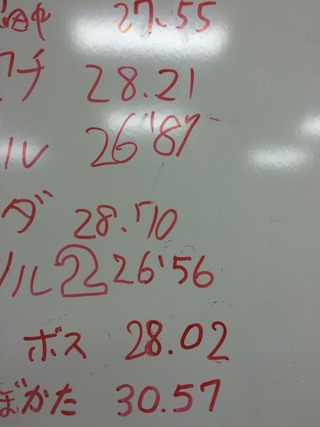 田中 27.55
アチ 28.21
ル 26'87
ダ 28.70
ノル② 26'56
ボス 28.02
ぼかた 30.57